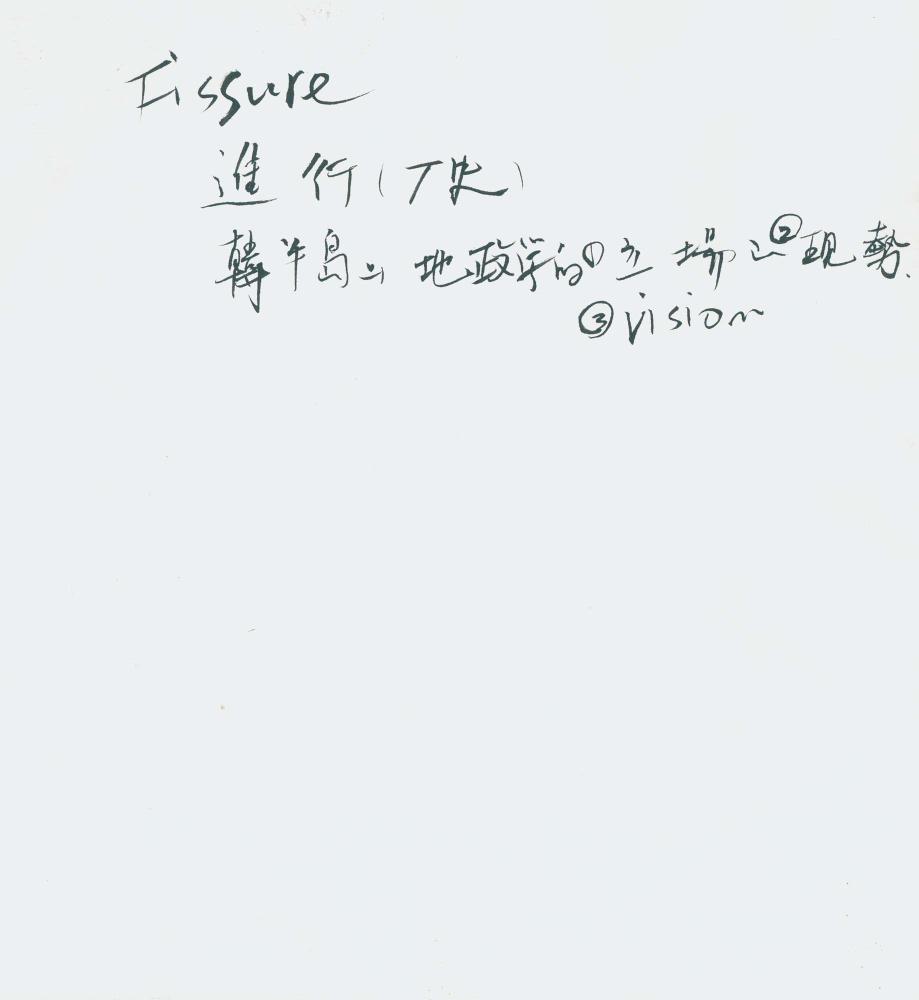 Fissure
進行(丁史)
韓半島의 地政学的 ① 立場과 ② 現勢.
③ vision